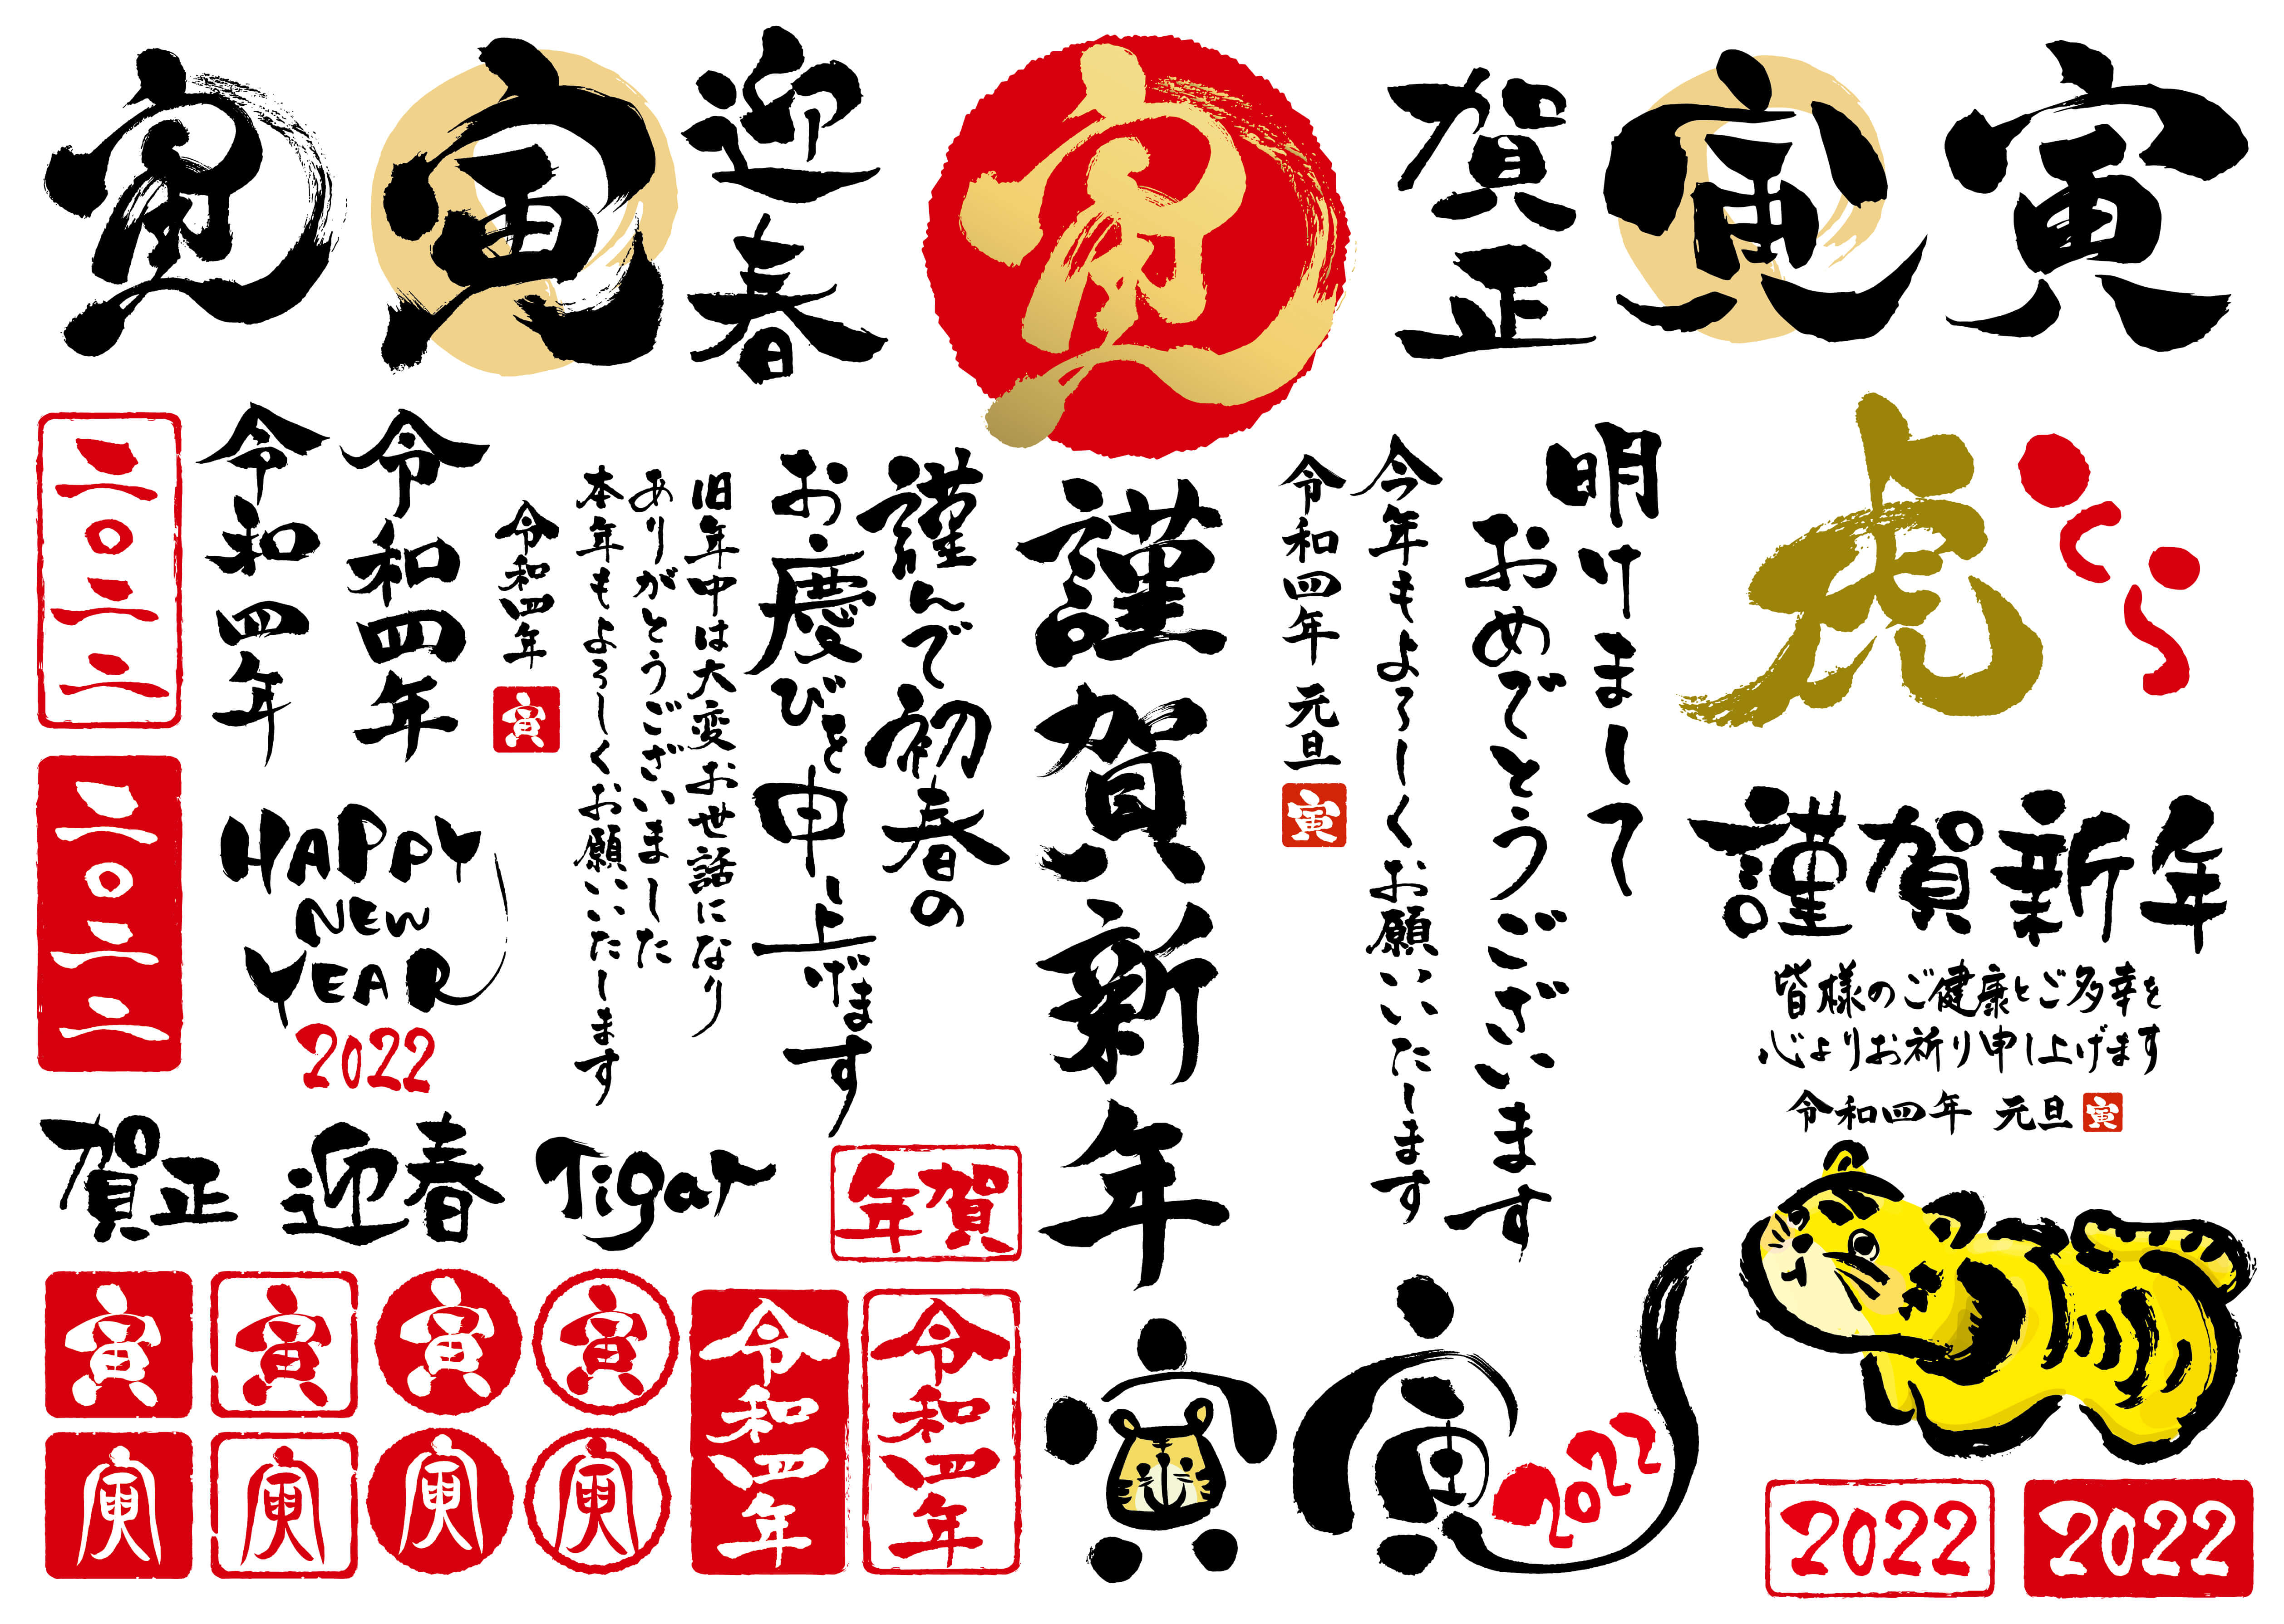 寅
寅
迎春
寅
賀正
寅
寅
二〇二二
令和四年
令和四年
令和四年
寅
旧年中は大変お世話になり
ありがとうございました
本年もよろしくお願いいたします
謹んで初春の
お慶びを申し上げます
謹賀新年
明けまして
おめでとうございます
今年もよろしくお願いいたします
令和四年 元旦
寅
虎
とら
二〇二二
HAPPY
NEW
YEAR
2022
謹賀新年
皆様のご健康とご多幸を
心よりお祈り申し上げます
令和四年 元旦 寅
賀正
迎春
Tiger
年賀
寅
寅
寅
寅
令和四年
令和四年
寅
寅
寅
寅
寅
寅
2022
2022
2022